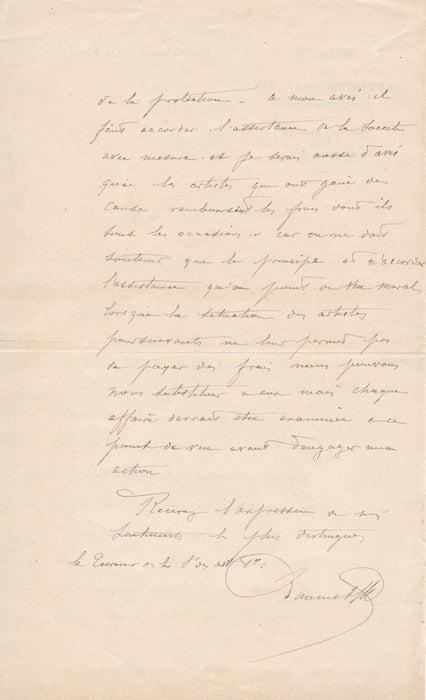 de la protection. a mon avis il
faut accorder l'assistance de la Societe
avec mesure. et je serais aussi d'avis
que les artistes qui ont gain de
cause remboursent les frais dont ils
sont les occasions. car on ne doit
soutenir que le principe et n'accorder
l'assistance qu'au point de vue moral,
lorsque la situation des artistes
poursuivants ne leur permet pas
de payer des frais nous pouvons
nous substituer a eux mais chaque
affaire devrait etre examinée a ce
point de vue avant d'engager une
action
Recevez l'expression de mes
sentiments les plus distingués
le de la des